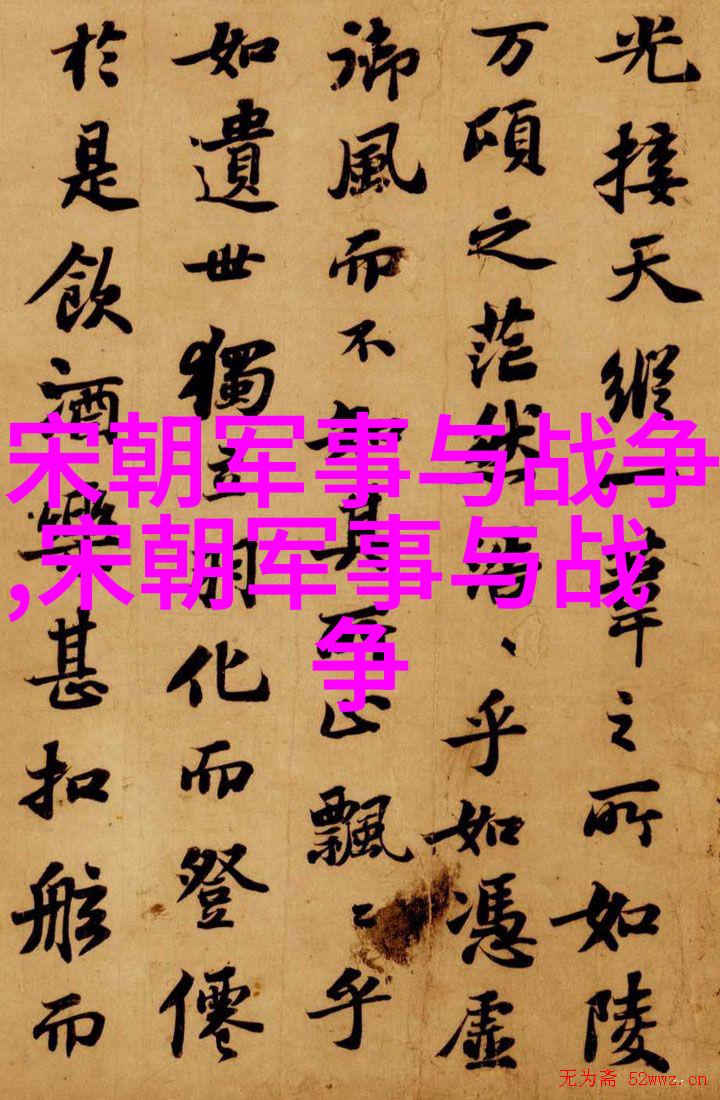 光接天縱一葦之所如陵
万頃之茫然浩、乎如憑虛
御風而不知其所止飄〻乎
如遺世獨立羽化而登僊
於是飲酒樂甚扣舷而
宋朝军事与战争
,宋朝军事与战
争
无为斋 52wwz.cn